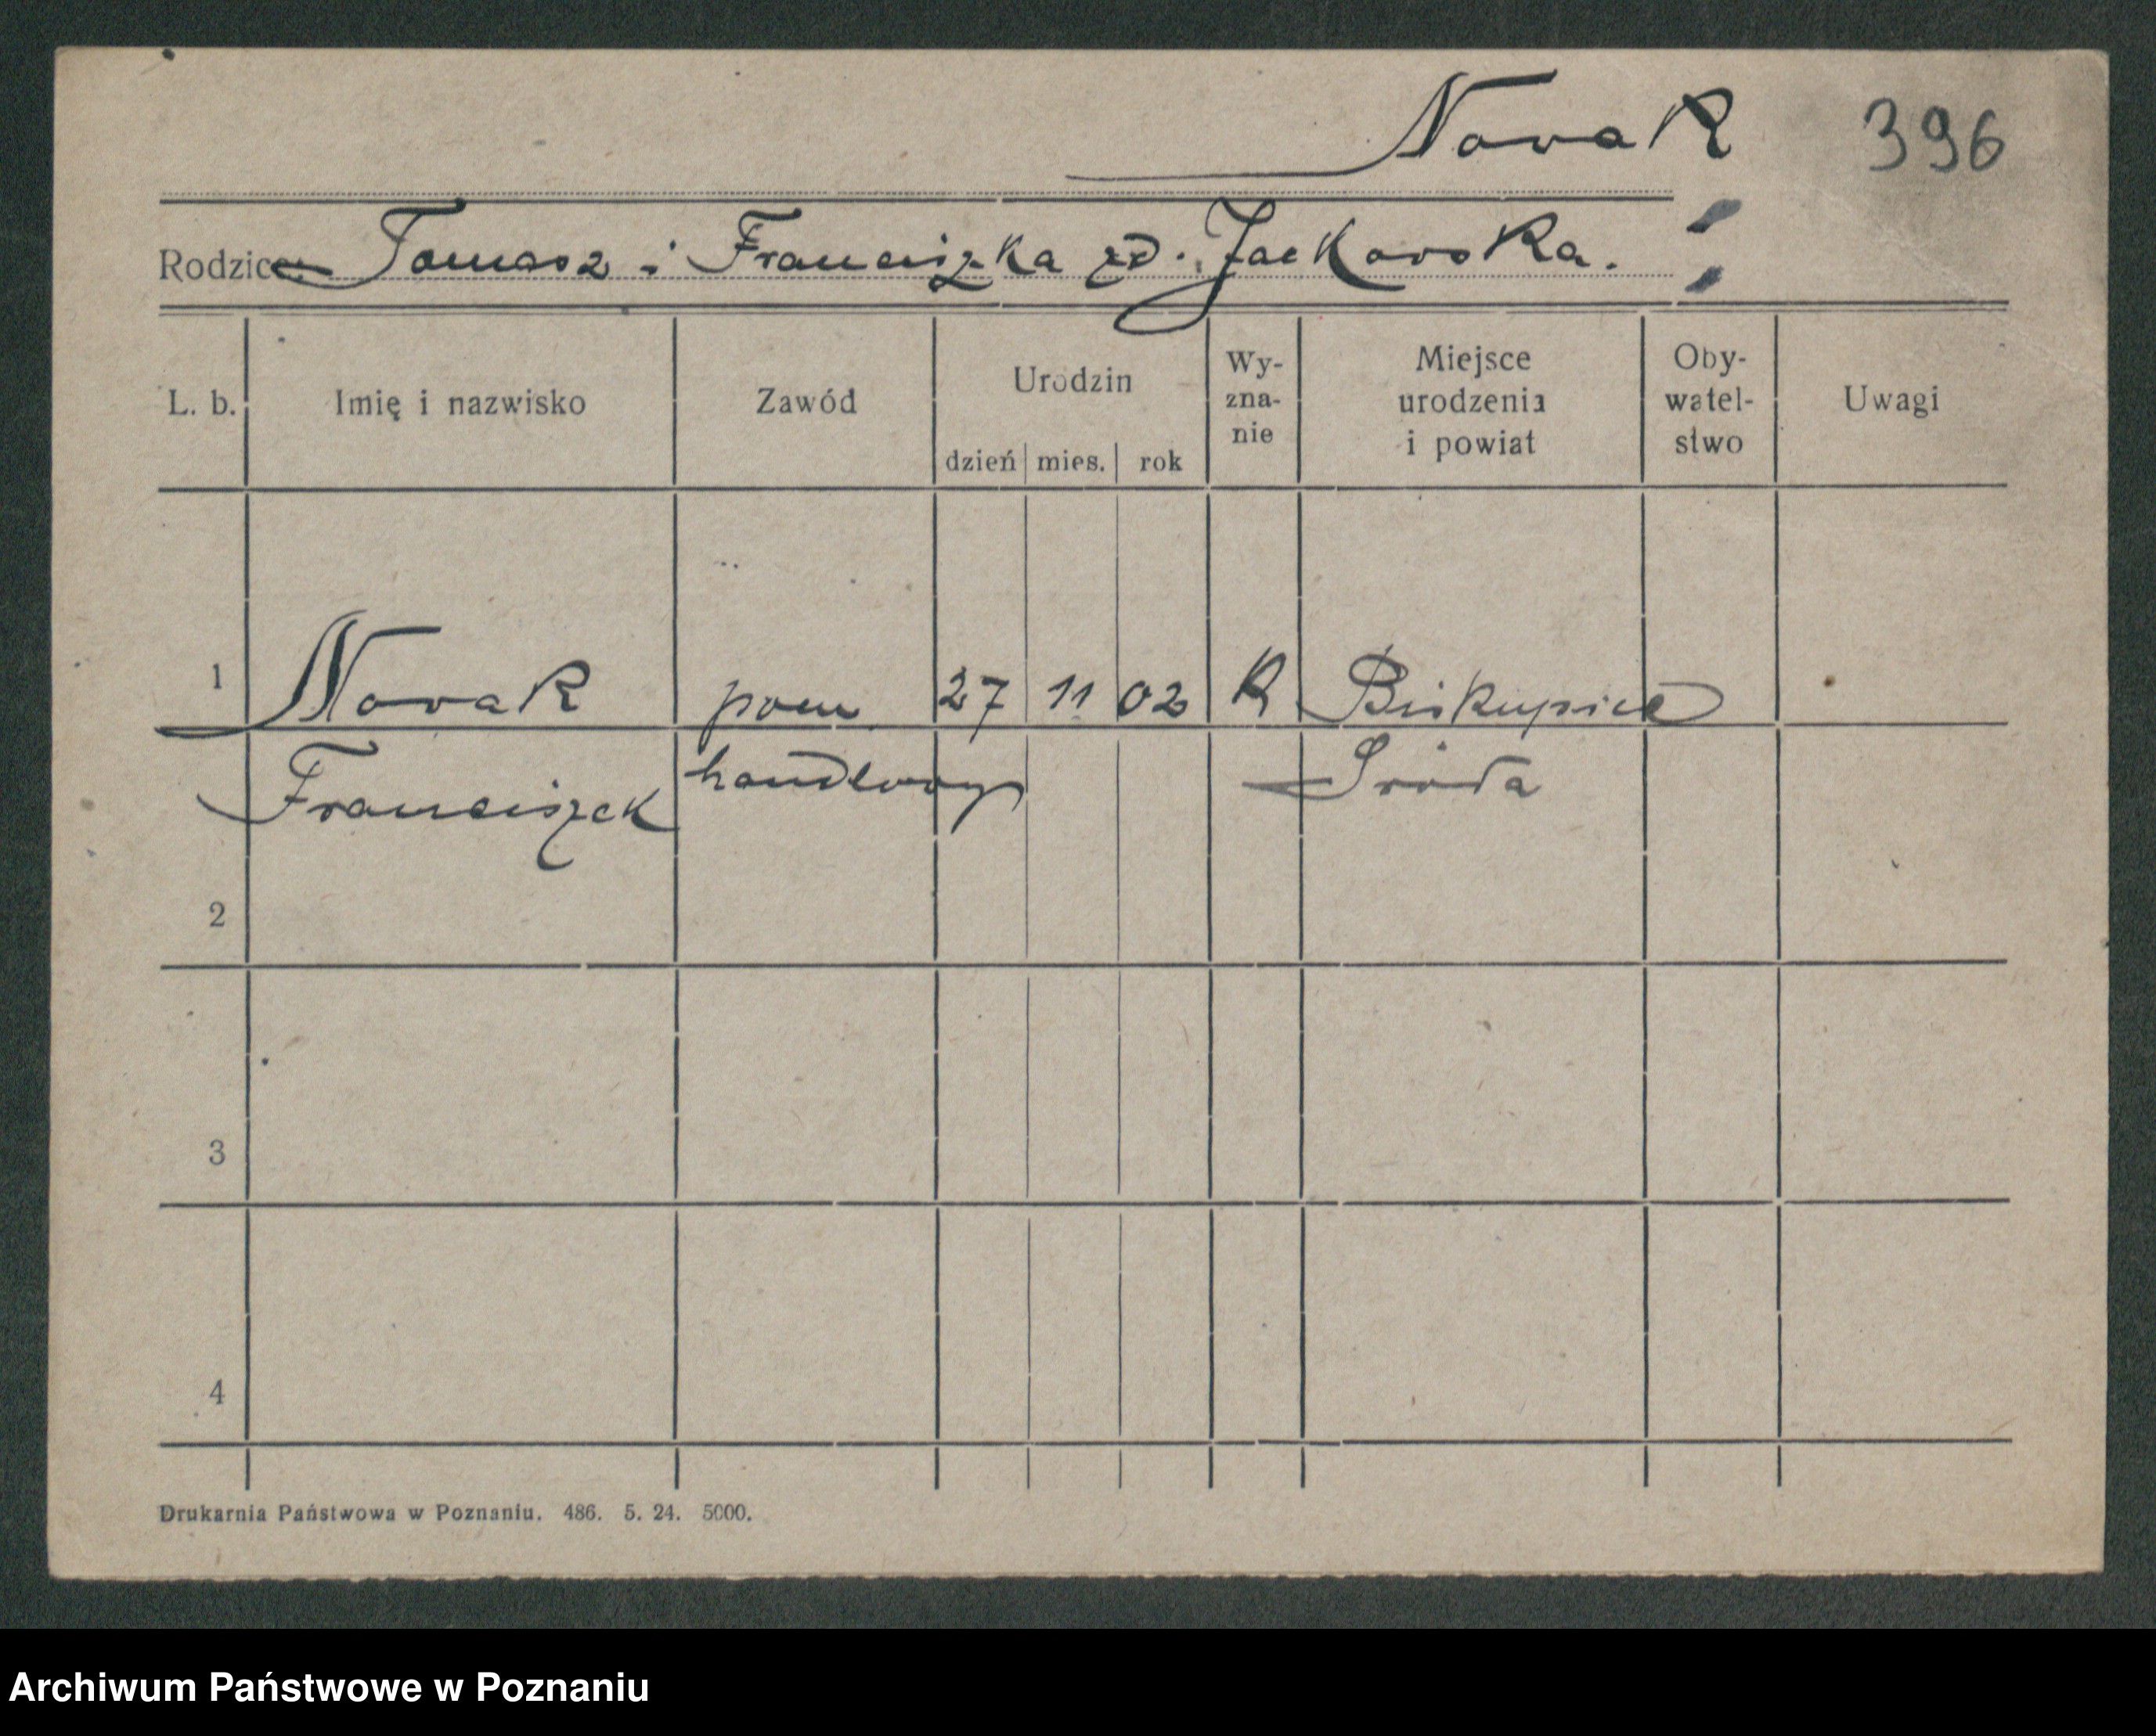 Nowak 396
Rodzice: Tomasz i Franciszka zd. Jackowska.
L. b. Imię i nazwisko Zawód Urodzin dzień mies. rok Wy-zna-nie Miejsce urodzenia i powiat Oby-watel-stwo Uwagi
1 Nowak pom 27 11 02 R Biskupice
Franciszek handlowy Środa
2
3
4
Drukarnia Państwowa w Poznaniu. 486. 5. 24. 5000.
Archiwum Państwowe w Poznaniu